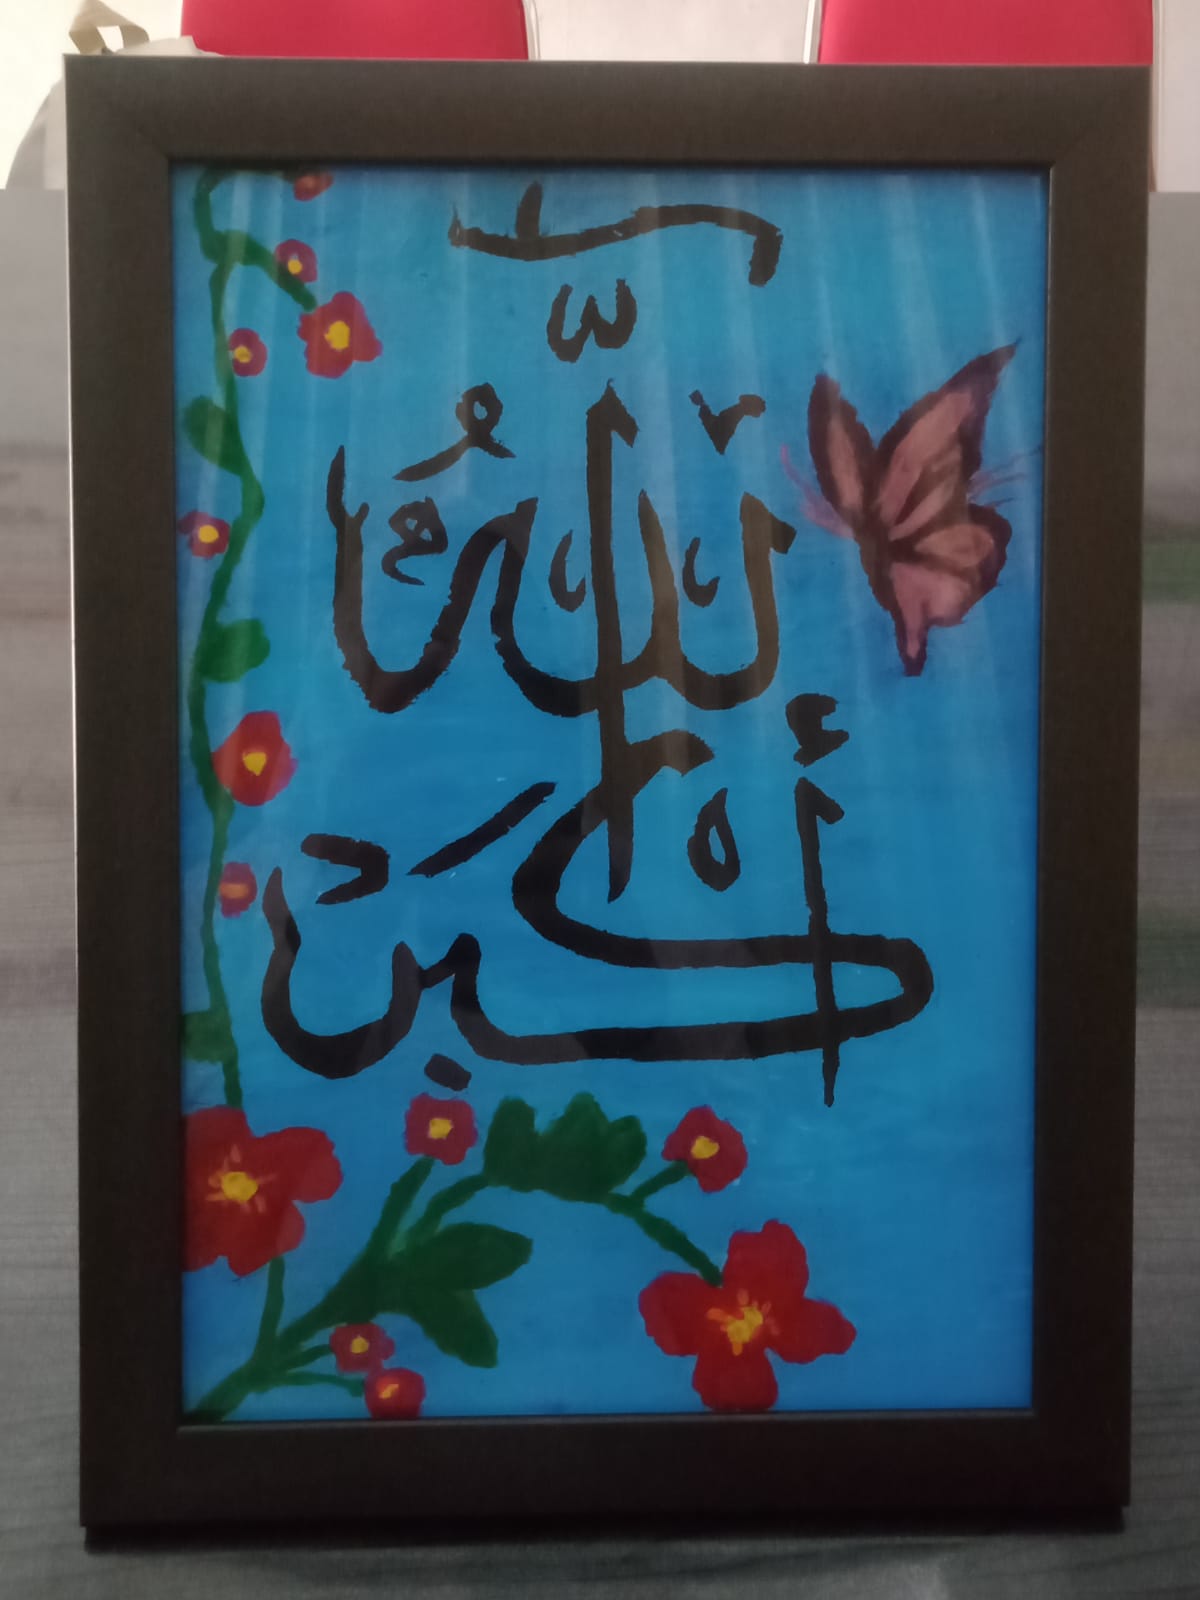 اللّٰهُ
أَكْبَر